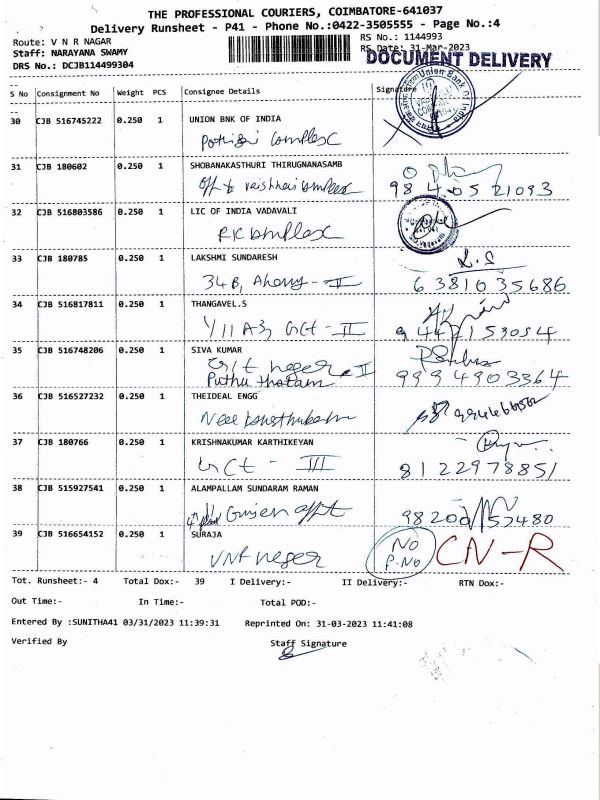 THE PROFESSIONAL COURIERS, COIMBATORE-641037
Delivery Runsheet - P41 - Phone No.:0422-3505555 - Page No.:4
Route: V N R NAGAR
RS No.: 1144993
Staff: NARAYANA SWAMY
RS Date: 31-Mar-2023
DRS No.: DCJB114499304
DOCUMENT DELIVERY
S No Consignment No Weight PCS Consignee Details Signature
30 CJB 516745222 0.250 1 UNION BNK OF INDIA
Complex
31 CJB 180602 0.250 1 SHOBANAKASTHURI THIRUGNANASAMB
98 4 05 21093
32 CJB 516803586 0.250 1 LIC OF INDIA VADAVALI
RK Complex
33 CJB 180785 0.250 1 LAKSHMI SUNDARESH
L.S
34B, - II 6381035686
34 CJB 516817811 0.250 1 THANGAVEL.S
1/11 A3, GCT - II 9442153054
35 CJB 516748206 0.250 1 SIVA KUMAR
II
Puthu thotam 9994903364
36 CJB 516527232 0.250 1 THEIDEAL ENGG
37 CJB 180766 0.250 1 KRISHNAKUMAR KARTHIKEYAN
GCT - III 8122978851
38 CJB 515927541 0.250 1 ALAMPALLAM SUNDARAM RAMAN
39 CJB 516654152 0.250 1 SURAJA
VNR neger
NO
P.NO
CN-R
Tot. Runsheet:- 4 Total Dox:- 39 I Delivery:- II Delivery:- RTN Dox:-
Out Time:- In Time:- Total POD:-
Entered By :SUNITHA41 03/31/2023 11:39:31 Reprinted On: 31-03-2023 11:41:08
Verified By Staff Signature